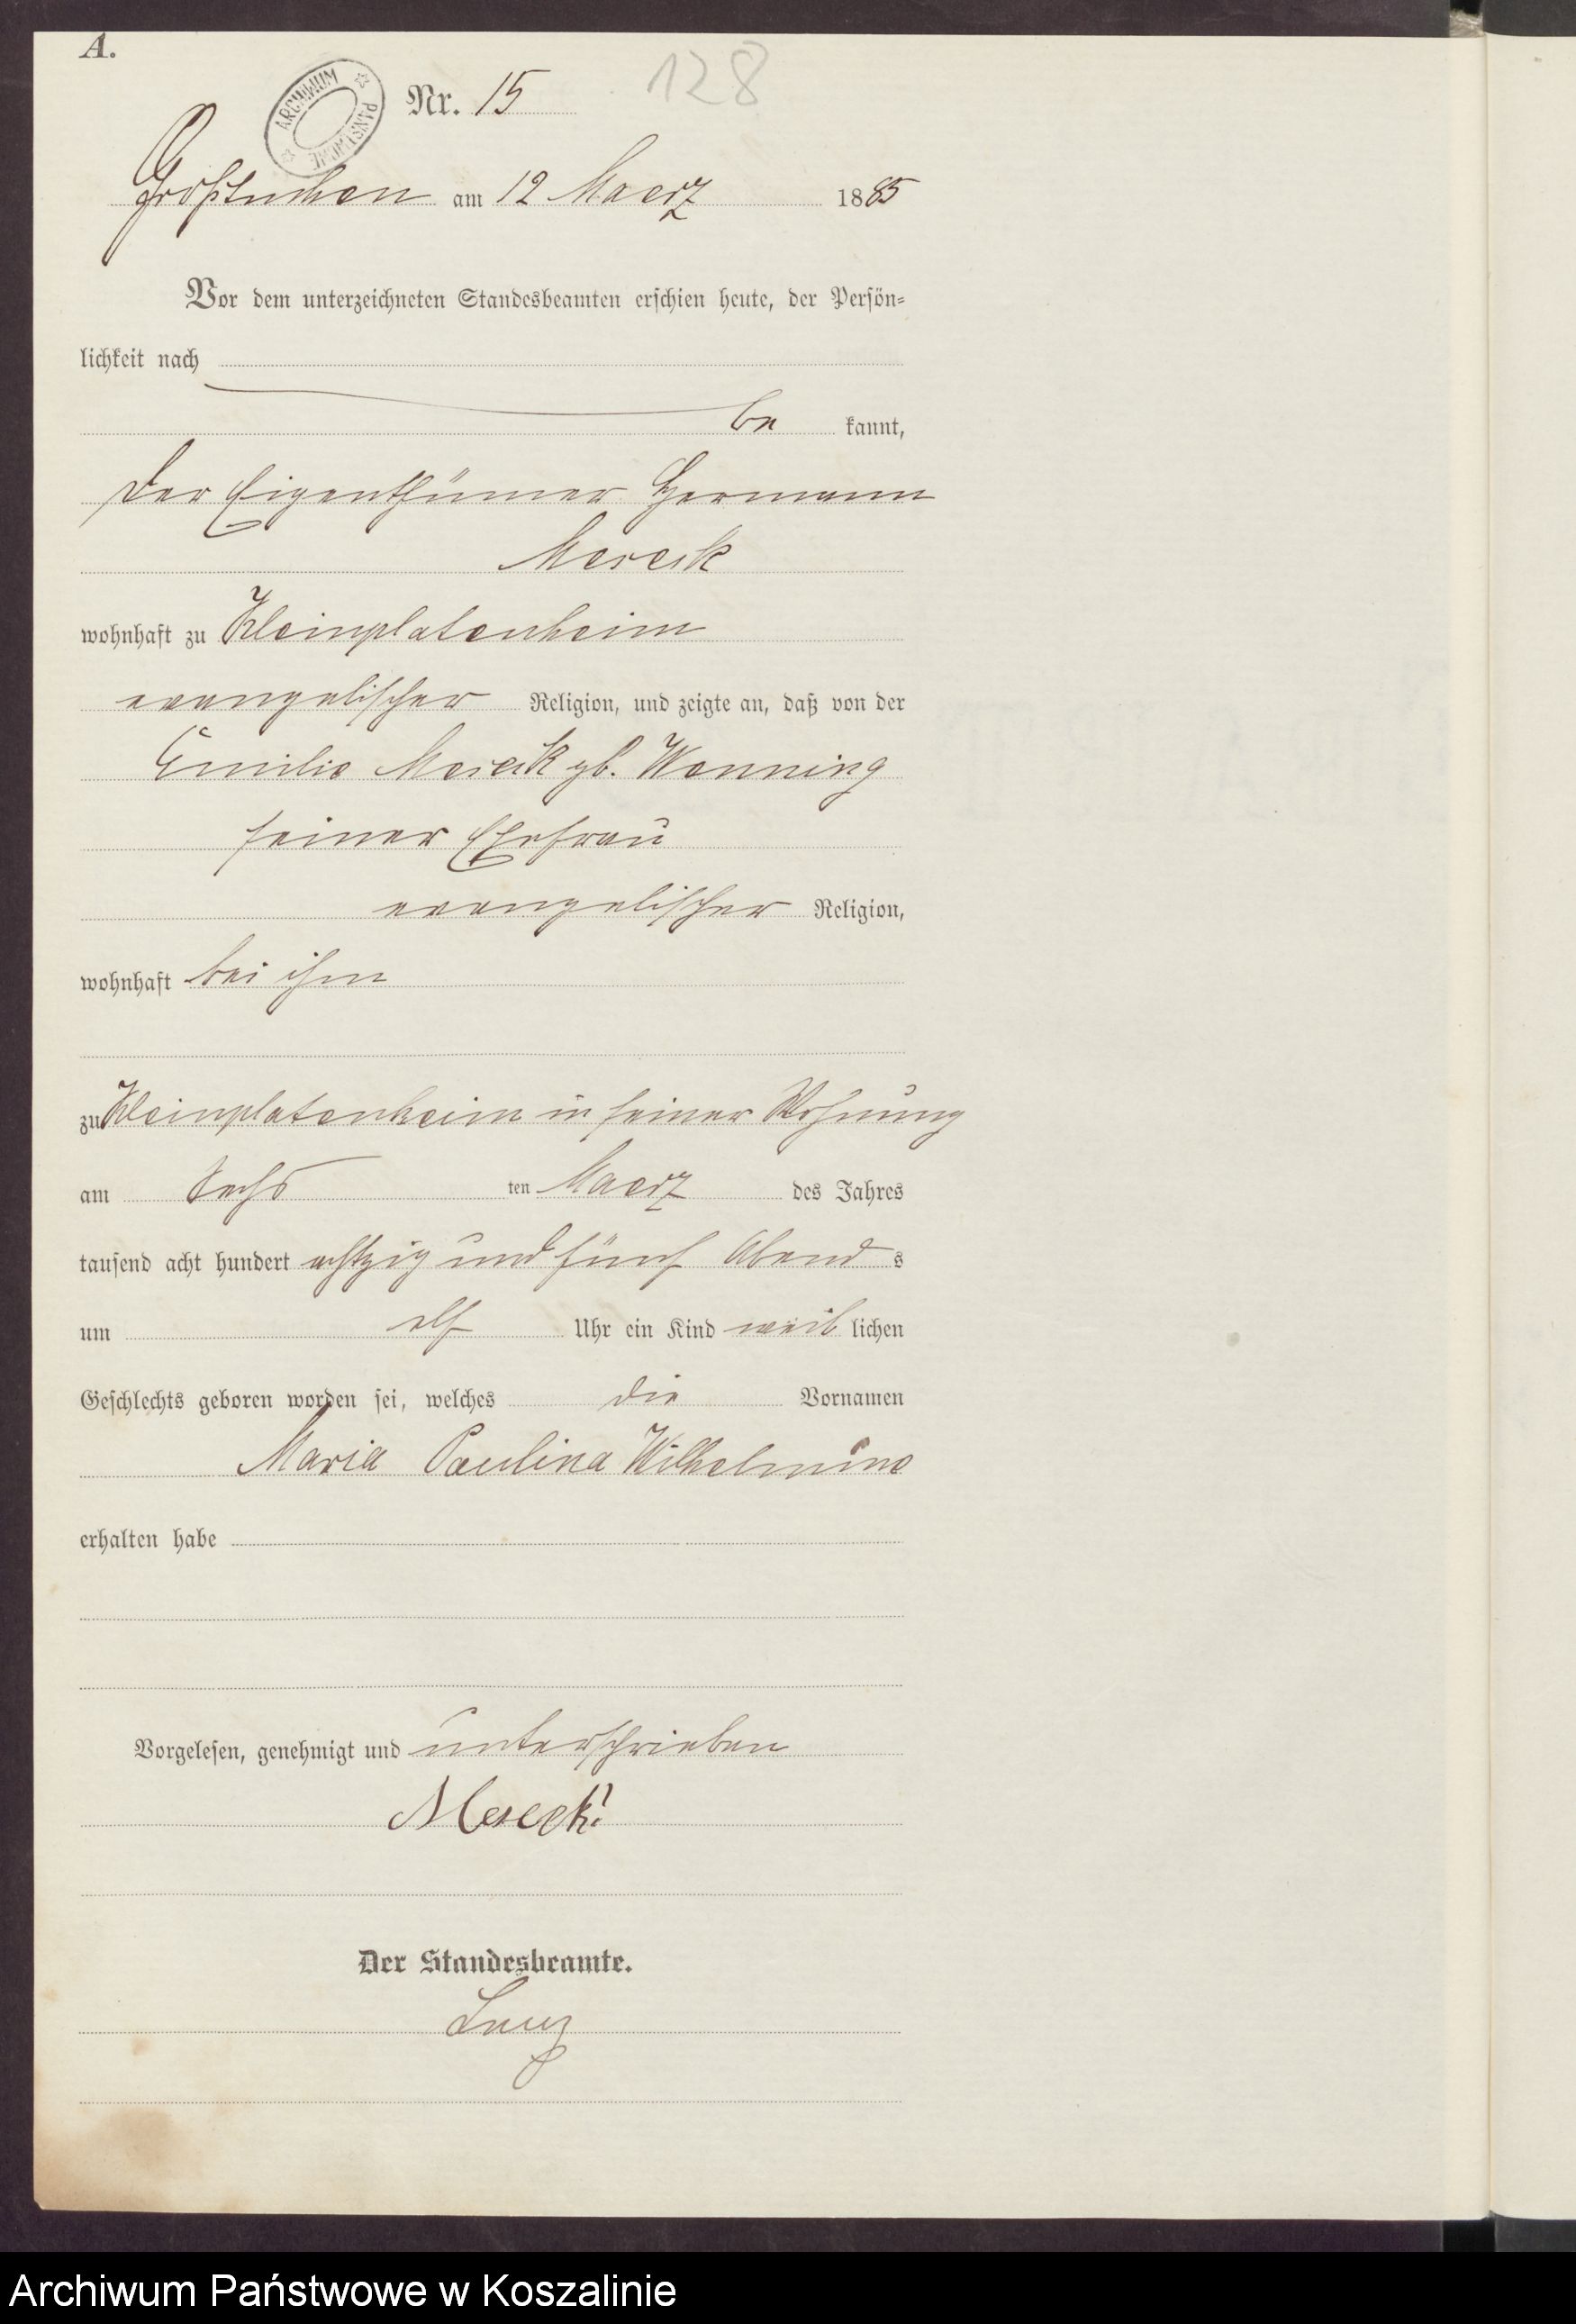 A.
ARCHIWUM PAŃSTWOWE
Nr. 15
128
Großtuchen am 12 Maerz 1885
Vor dem unterzeichneten Standesbeamten erschien heute, der Persön-
lichkeit nach
be kannt,
der Eigenthümer Hermann
Meseck
wohnhaft zu Kleinplatenheim
evangelischer Religion, und zeigte an, daß von der
Emilie Meseck gb. Wenning
seiner Ehefrau
evangelischer Religion,
wohnhaft bei ihm
zu Kleinplatenheim in seiner Wohnung
am sechs ten Maerz des Jahres
tausend acht hundert achtzig und fünf Abend s
um elf Uhr ein Kind weib lichen
Geschlechts geboren worden sei, welches die Vornamen
Maria Paulina Wilhelmine
erhalten habe
Vorgelesen, genehmigt und unterschrieben
Meseck
Der Standesbeamte.
Archiwum Państwowe w Koszalinie